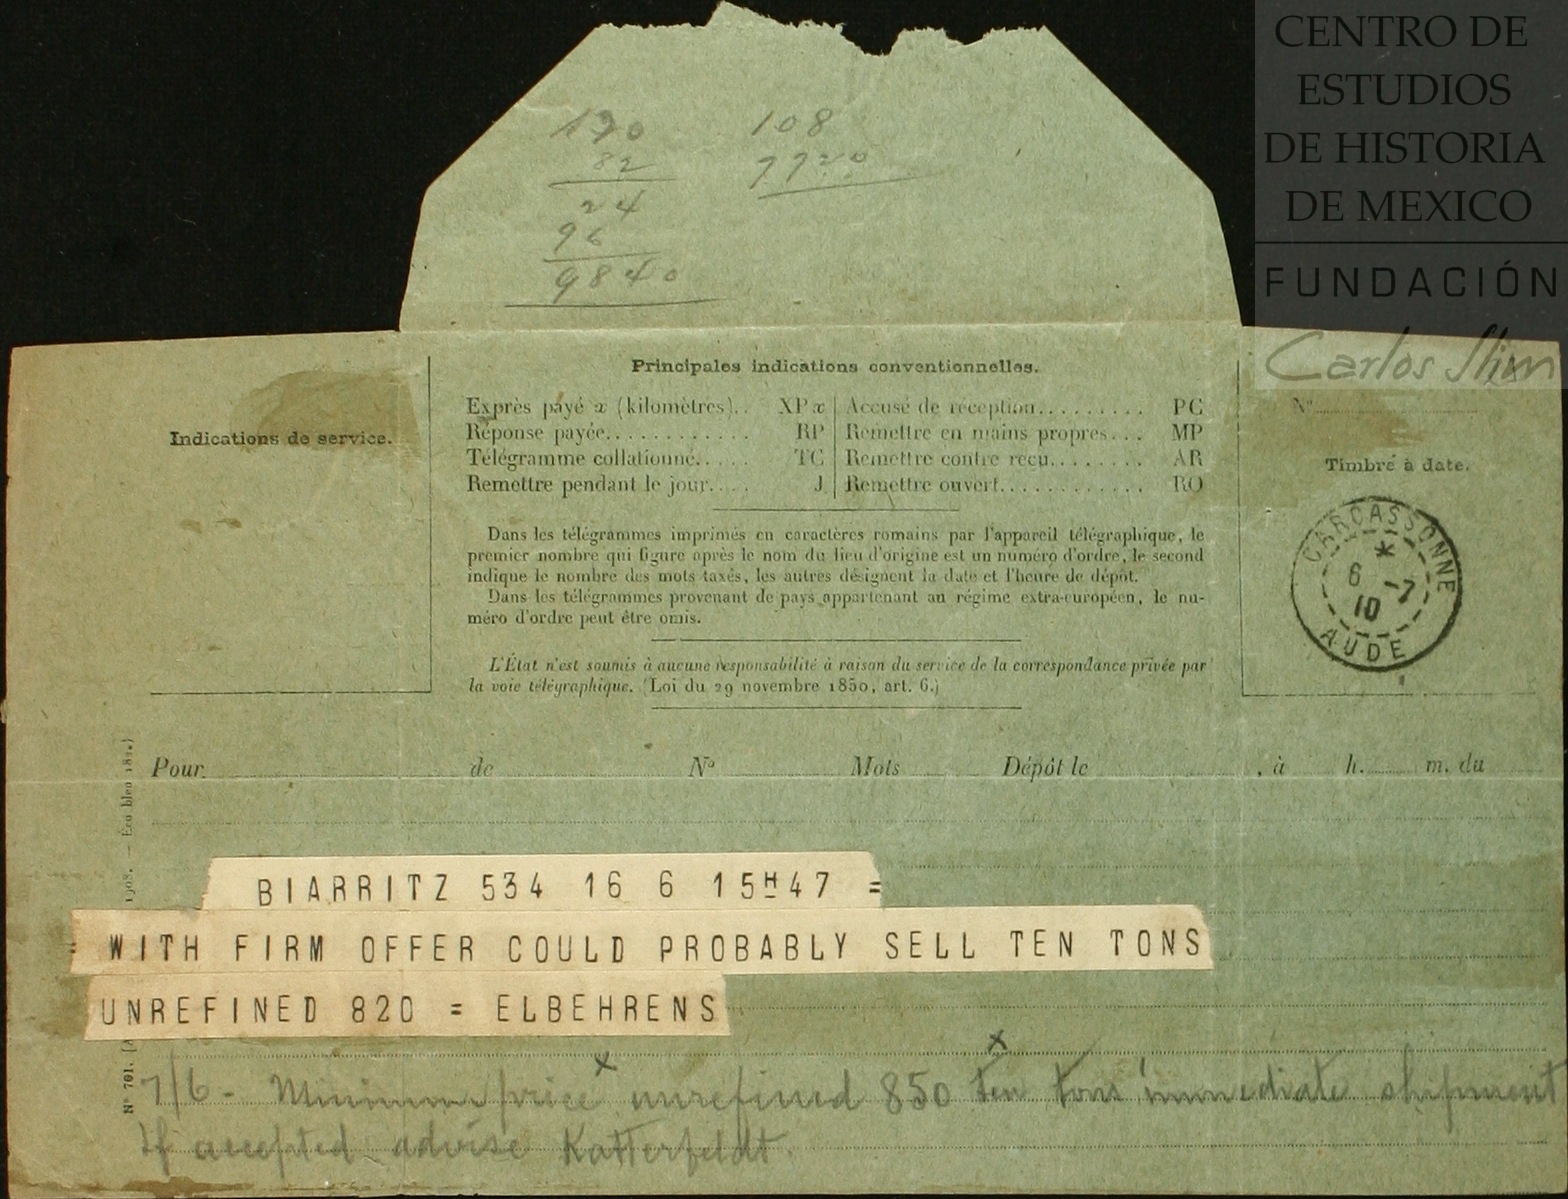 CENTRO DE
ESTUDIOS
DE HISTORIA
DE MEXICO
FUNDACIÓN
Carlos Slim
120
82
24
96
9840
108
7720
Principales indications conventionnelles.
Exprès payé x (kilomètres).. XPx
Réponse payée............ RP
Télégramme collationné..... TC
Remettre pendant le jour.... J
Accusé de réception......... PC
Remettre en mains propres... MP
Remettre contre reçu........ AR
Remettre ouvert............ RO
Indications de service.
N°
Timbre à date.
CARCASSONNE
*
6 -7
10
AUDE
Dans les télégrammes imprimés en caractères romains par l'appareil télégraphique, le
premier nombre qui figure après le nom du lieu d'origine est un numéro d'ordre, le second
indique le nombre des mots taxés, les autres désignent la date et l'heure de dépôt.
Dans les télégrammes provenant de pays appartenant au régime extra-européen, le nu-
méro d'ordre peut être omis.
L'État n'est soumis à aucune responsabilité à raison du service de la correspondance privée par
la voie télégraphique. (Loi du 29 novembre 1850, art. 6.)
Pour de N° Mots Dépôt le , à h. m. du
BIARRITZ 534 16 6 15H47 =
= WITH FIRM OFFER COULD PROBABLY SELL TEN TONS
UNREFINED 820 = ELBEHRENS
7/6 - Minimum price x unrefined 850 x ten tons immediate shipment
If accepted advise Katterfeldt.
N° 701.